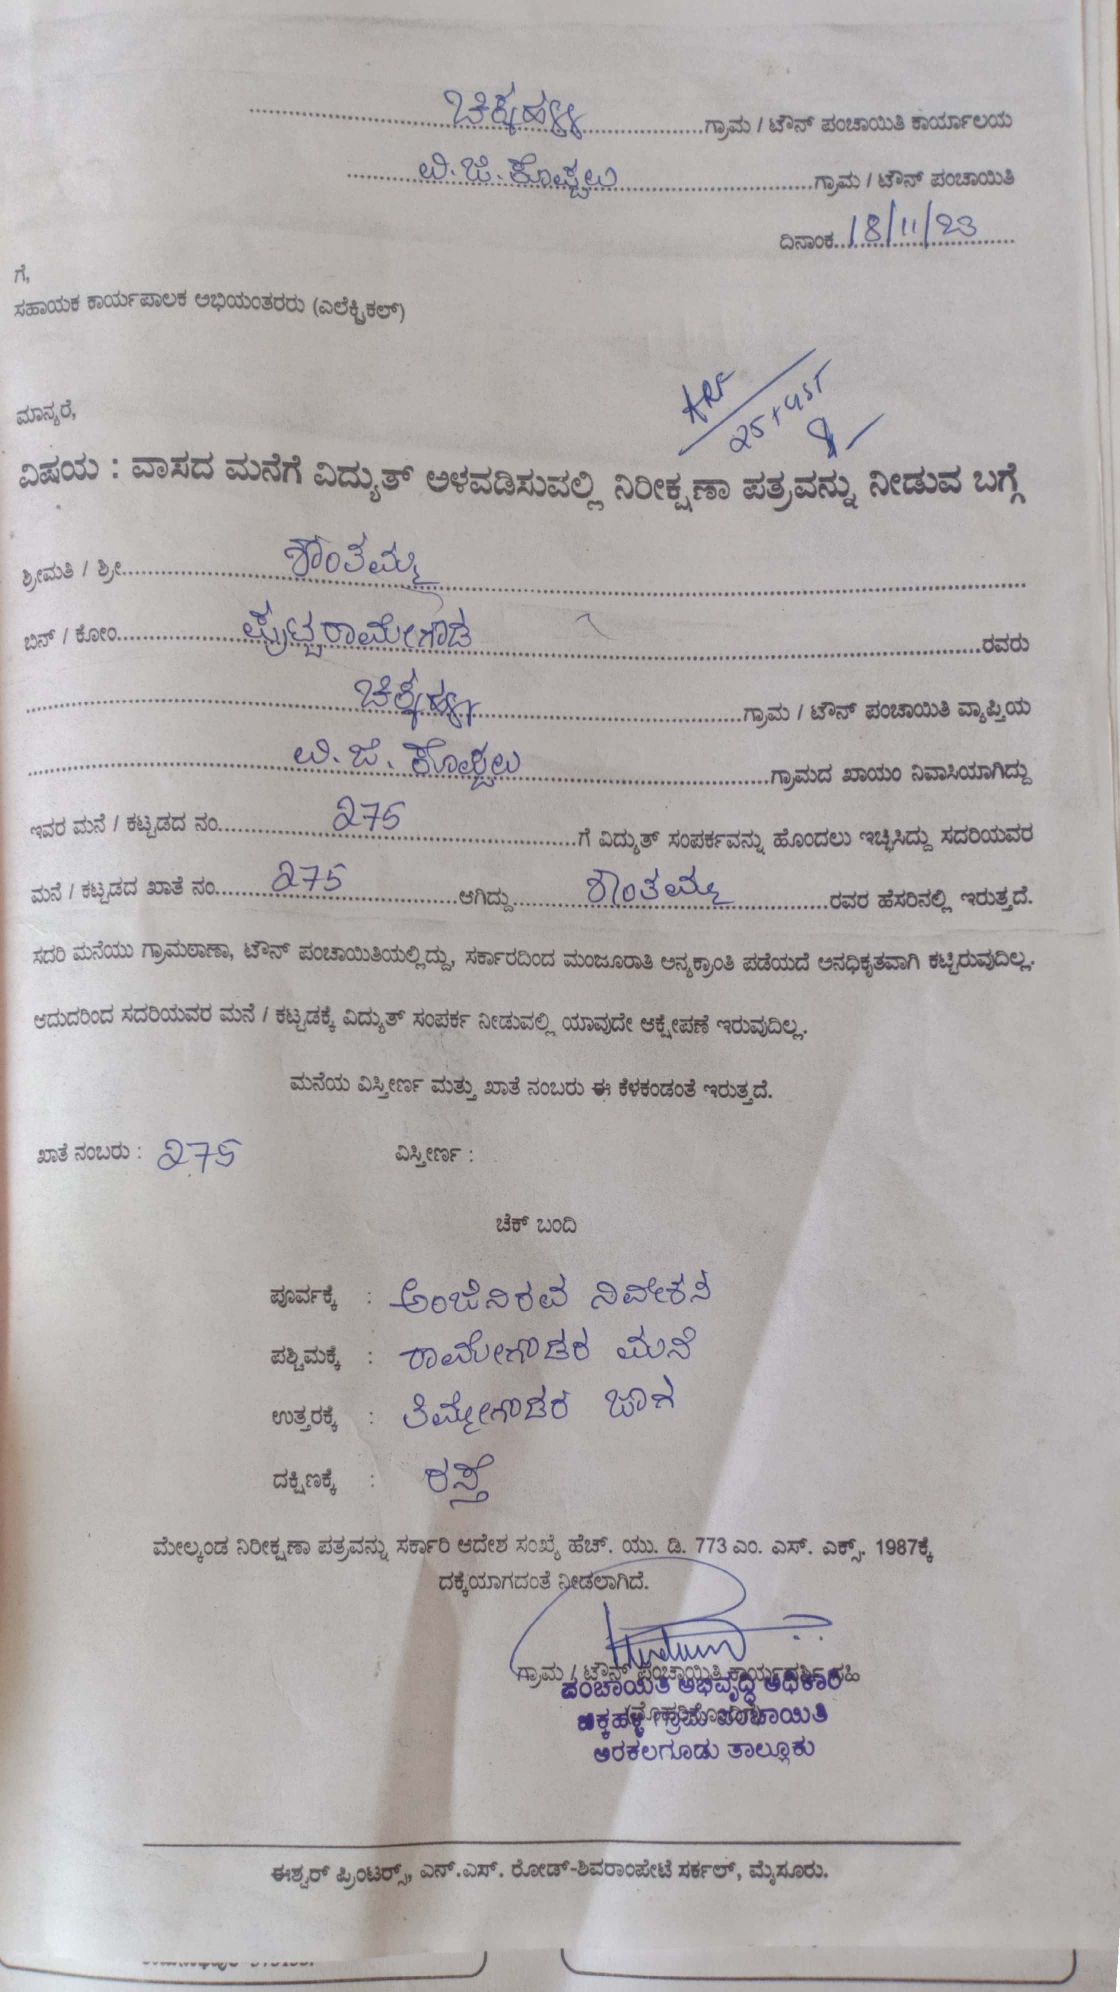 ಚಿಕ್ಕಹಳ್ಳಿ ಗ್ರಾಮ / ಟೌನ್ ಪಂಚಾಯಿತಿ ಕಾರ್ಯಾಲಯ
ಬಿ.ಜೆ.ಕೊಪ್ಪಲು ಗ್ರಾಮ / ಟೌನ್ ಪಂಚಾಯಿತಿ
ದಿನಾಂಕ 18/11/23
ಗೆ,
ಸಹಾಯಕ ಕಾರ್ಯಪಾಲಕ ಅಭಿಯಂತರರು (ಎಲೆಕ್ಟ್ರಿಕಲ್)
ಮಾನ್ಯರೆ,
ವಿಷಯ : ವಾಸದ ಮನೆಗೆ ವಿದ್ಯುತ್ ಅಳವಡಿಸುವಲ್ಲಿ ನಿರೀಕ್ಷಣಾ ಪತ್ರವನ್ನು ನೀಡುವ ಬಗ್ಗೆ
ಶ್ರೀಮತಿ / ಶ್ರೀ ಶಾಂತಮ್ಮ
ಬಿನ್ / ಕೋಂ ಪುಟ್ಟರಾಮೇಗೌಡ ರವರು
ಚಿಕ್ಕಹಳ್ಳಿ ಗ್ರಾಮ / ಟೌನ್ ಪಂಚಾಯಿತಿ ವ್ಯಾಪ್ತಿಯ
ಬಿ.ಜೆ. ಕೊಪ್ಪಲು ಗ್ರಾಮದ ಖಾಯಂ ನಿವಾಸಿಯಾಗಿದ್ದು
ಇವರ ಮನೆ / ಕಟ್ಟಡದ ನಂ 275 ಗೆ ವಿದ್ಯುತ್ ಸಂಪರ್ಕವನ್ನು ಹೊಂದಲು ಇಚ್ಛಿಸಿದ್ದು ಸದರಿಯವರ
ಮನೆ / ಕಟ್ಟಡದ ಖಾತೆ ನಂ 275 ಆಗಿದ್ದು ಶಾಂತಮ್ಮ ರವರ ಹೆಸರಿನಲ್ಲಿ ಇರುತ್ತದೆ.
ಸದರಿ ಮನೆಯು ಗ್ರಾಮಠಾಣಾ, ಟೌನ್ ಪಂಚಾಯಿತಿಯಲ್ಲಿದ್ದು, ಸರ್ಕಾರದಿಂದ ಮಂಜೂರಾತಿ ಅನ್ಯಕ್ರಾಂತಿ ಪಡೆಯದೆ ಅನಧಿಕೃತವಾಗಿ ಕಟ್ಟಿರುವುದಿಲ್ಲ.
ಆದುದರಿಂದ ಸದರಿಯವರ ಮನೆ / ಕಟ್ಟಡಕ್ಕೆ ವಿದ್ಯುತ್ ಸಂಪರ್ಕ ನೀಡುವಲ್ಲಿ ಯಾವುದೇ ಆಕ್ಷೇಪಣೆ ಇರುವುದಿಲ್ಲ.
ಮನೆಯ ವಿಸ್ತೀರ್ಣ ಮತ್ತು ಖಾತೆ ನಂಬರು ಈ ಕೆಳಕಂಡಂತೆ ಇರುತ್ತದೆ.
ಖಾತೆ ನಂಬರು : 275 ವಿಸ್ತೀರ್ಣ :
ಚೆಕ್ ಬಂದಿ
ಪೂರ್ವಕ್ಕೆ : ನಿವೇಶನ
ಪಶ್ಚಿಮಕ್ಕೆ : ರಾಮೇಗೌಡರ ಮನೆ
ಉತ್ತರಕ್ಕೆ : ತಿಮ್ಮೇಗೌಡರ ಜಾಗ
ದಕ್ಷಿಣಕ್ಕೆ : ರಸ್ತೆ
ಮೇಲ್ಕಂಡ ನಿರೀಕ್ಷಣಾ ಪತ್ರವನ್ನು ಸರ್ಕಾರಿ ಆದೇಶ ಸಂಖ್ಯೆ ಹೆಚ್. ಯು. ಡಿ. 773 ಎಂ. ಎಸ್. ಎಕ್ಸ್. 1987ಕ್ಕೆ
ದಕ್ಕೆಯಾಗದಂತೆ ನೀಡಲಾಗಿದೆ.
ಗ್ರಾಮ / ಟೌನ್ ಪಂಚಾಯಿತಿ ಕಾರ್ಯದರ್ಶಿ ಸಹಿ
ಪಂಚಾಯಿತಿ ಅಭಿವೃದ್ಧಿ ಅಧಿಕಾರಿ
ಚಿಕ್ಕಹಳ್ಳಿ ಗ್ರಾಮ ಪಂಚಾಯಿತಿ
ಅರಕಲಗೂಡು ತಾಲ್ಲೂಕು
ಈಶ್ವರ್ ಪ್ರಿಂಟರ್ಸ್, ಎನ್.ಎಸ್. ರೋಡ್-ಶಿವರಾಂಪೇಟೆ ಸರ್ಕಲ್, ಮೈಸೂರು.